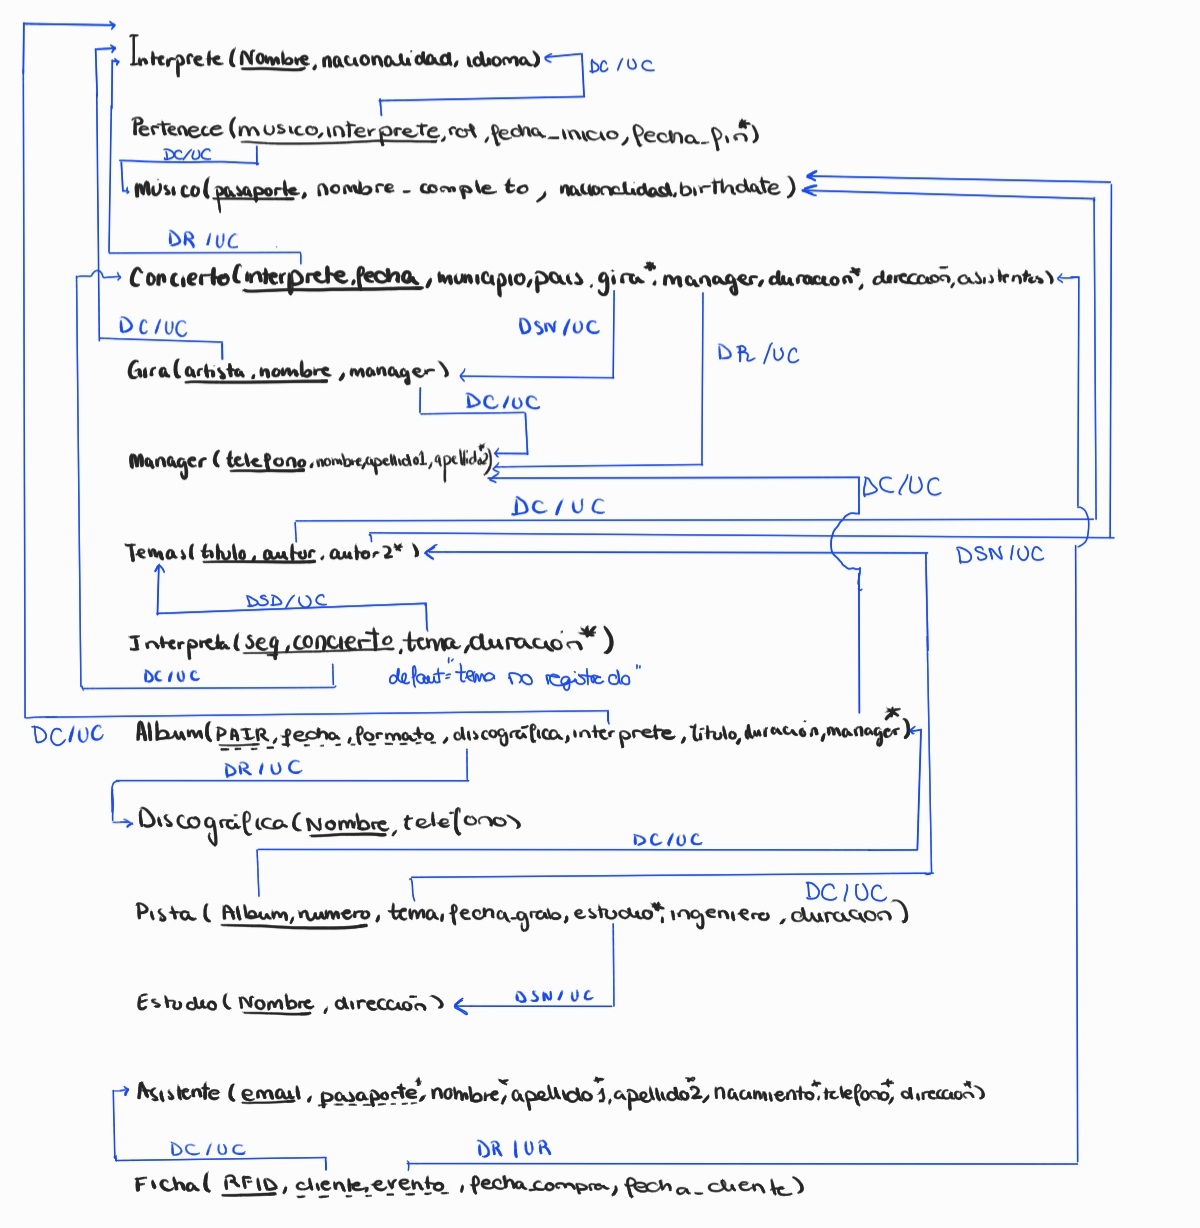 Interprete (Nombre, nacionalidad, idioma)
DC/UC
Pertenece (musico, interprete, rol, fecha_inicio, fecha_fin*)
DC/UC
Músico (pasaporte, nombre_completo, nacionalidad, birthdate)
DR/UC
Concierto (interprete, fecha, municipio, pais, gira*, manager, duracion*, dirección, asistentes)
DC/UC
DSN/UC
DR/UC
Gira (artista, nombre, manager)
DC/UC
Manager (telefono, nombre, apellido1, apellido2*)
DC/UC
DC/UC
Temas (titulo, autor, autor2*)
DSN/UC
DSD/UC
Interpreta (seq, concierto, tema, duración*)
DC/UC
defaut="tema no registrado"
DC/UC
Album (PAIR, fecha, formato, discográfica, interprete, titulo, duración, manager*)
DR/UC
Discográfica (Nombre, teléfono)
DC/UC
DC/UC
Pista (Album, numero, tema, fecha_grab, estudio*, ingeniero, duracion)
DSN/UC
Estudio (Nombre, dirección)
Asistente (email, pasaporte*, nombre*, apellido1*, apellido2*, nacimiento*, telefono*, dirección*)
DC/UC
DR/UR
Ficha (RFID, cliente, evento, fecha_compra, fecha_cliente)